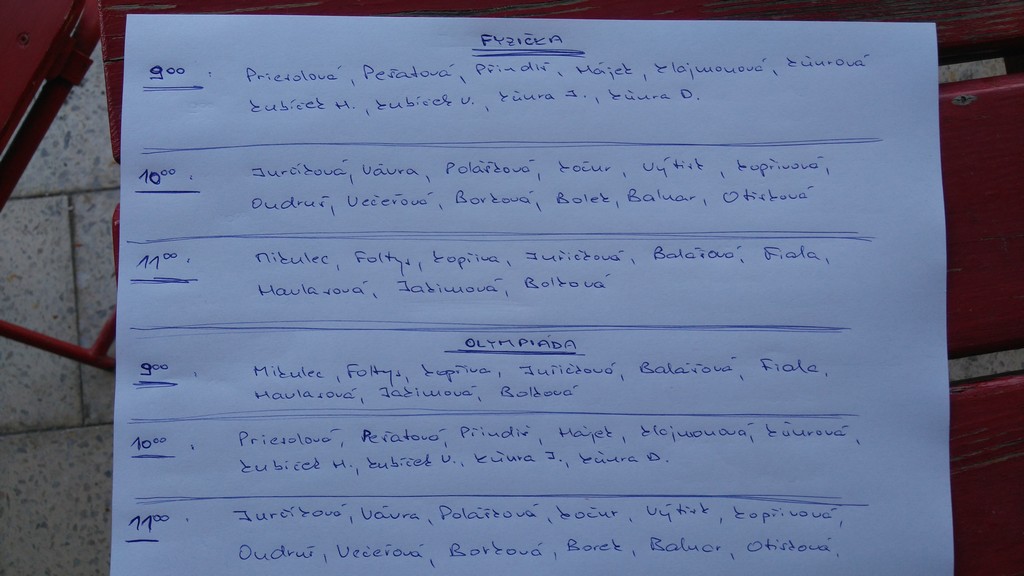 FYZIČKA
9⁰⁰. Prierolová, Pekařová, Přindiš, Hájek, Klajmonová, Kůurová
Kubíček M., Kubíček V., Kůura J., Kůura D.
10⁰⁰. Jurčíková, Vávra, Polášková, Kočur, Výtisk, Kopřivová,
Ondruš, Večeřová, Borková, Bolek, Baluar, Otisková
11⁰⁰. Mikulec, Foltys, Kopřiva, Juřičková, Balášová, Fiala,
Havlasová, Jakimová, Bolková
OLYMPIÁDA
9⁰⁰. Mikulec, Foltys, Kopřiva, Juřičková, Balášová, Fiala,
Havlasová, Jakimová, Bolková
10⁰⁰. Prierolová, Pekařová, Přindiš, Hájek, Klajmonová, Kůurová,
Kubíček M., Kubíček V., Kůura J., Kůura D.
11⁰⁰. Jurčíková, Vávra, Polášková, Kočur, Výtisk, Kopřivová,
Ondruš, Večeřová, Borková, Borek, Baluar, Otisková,